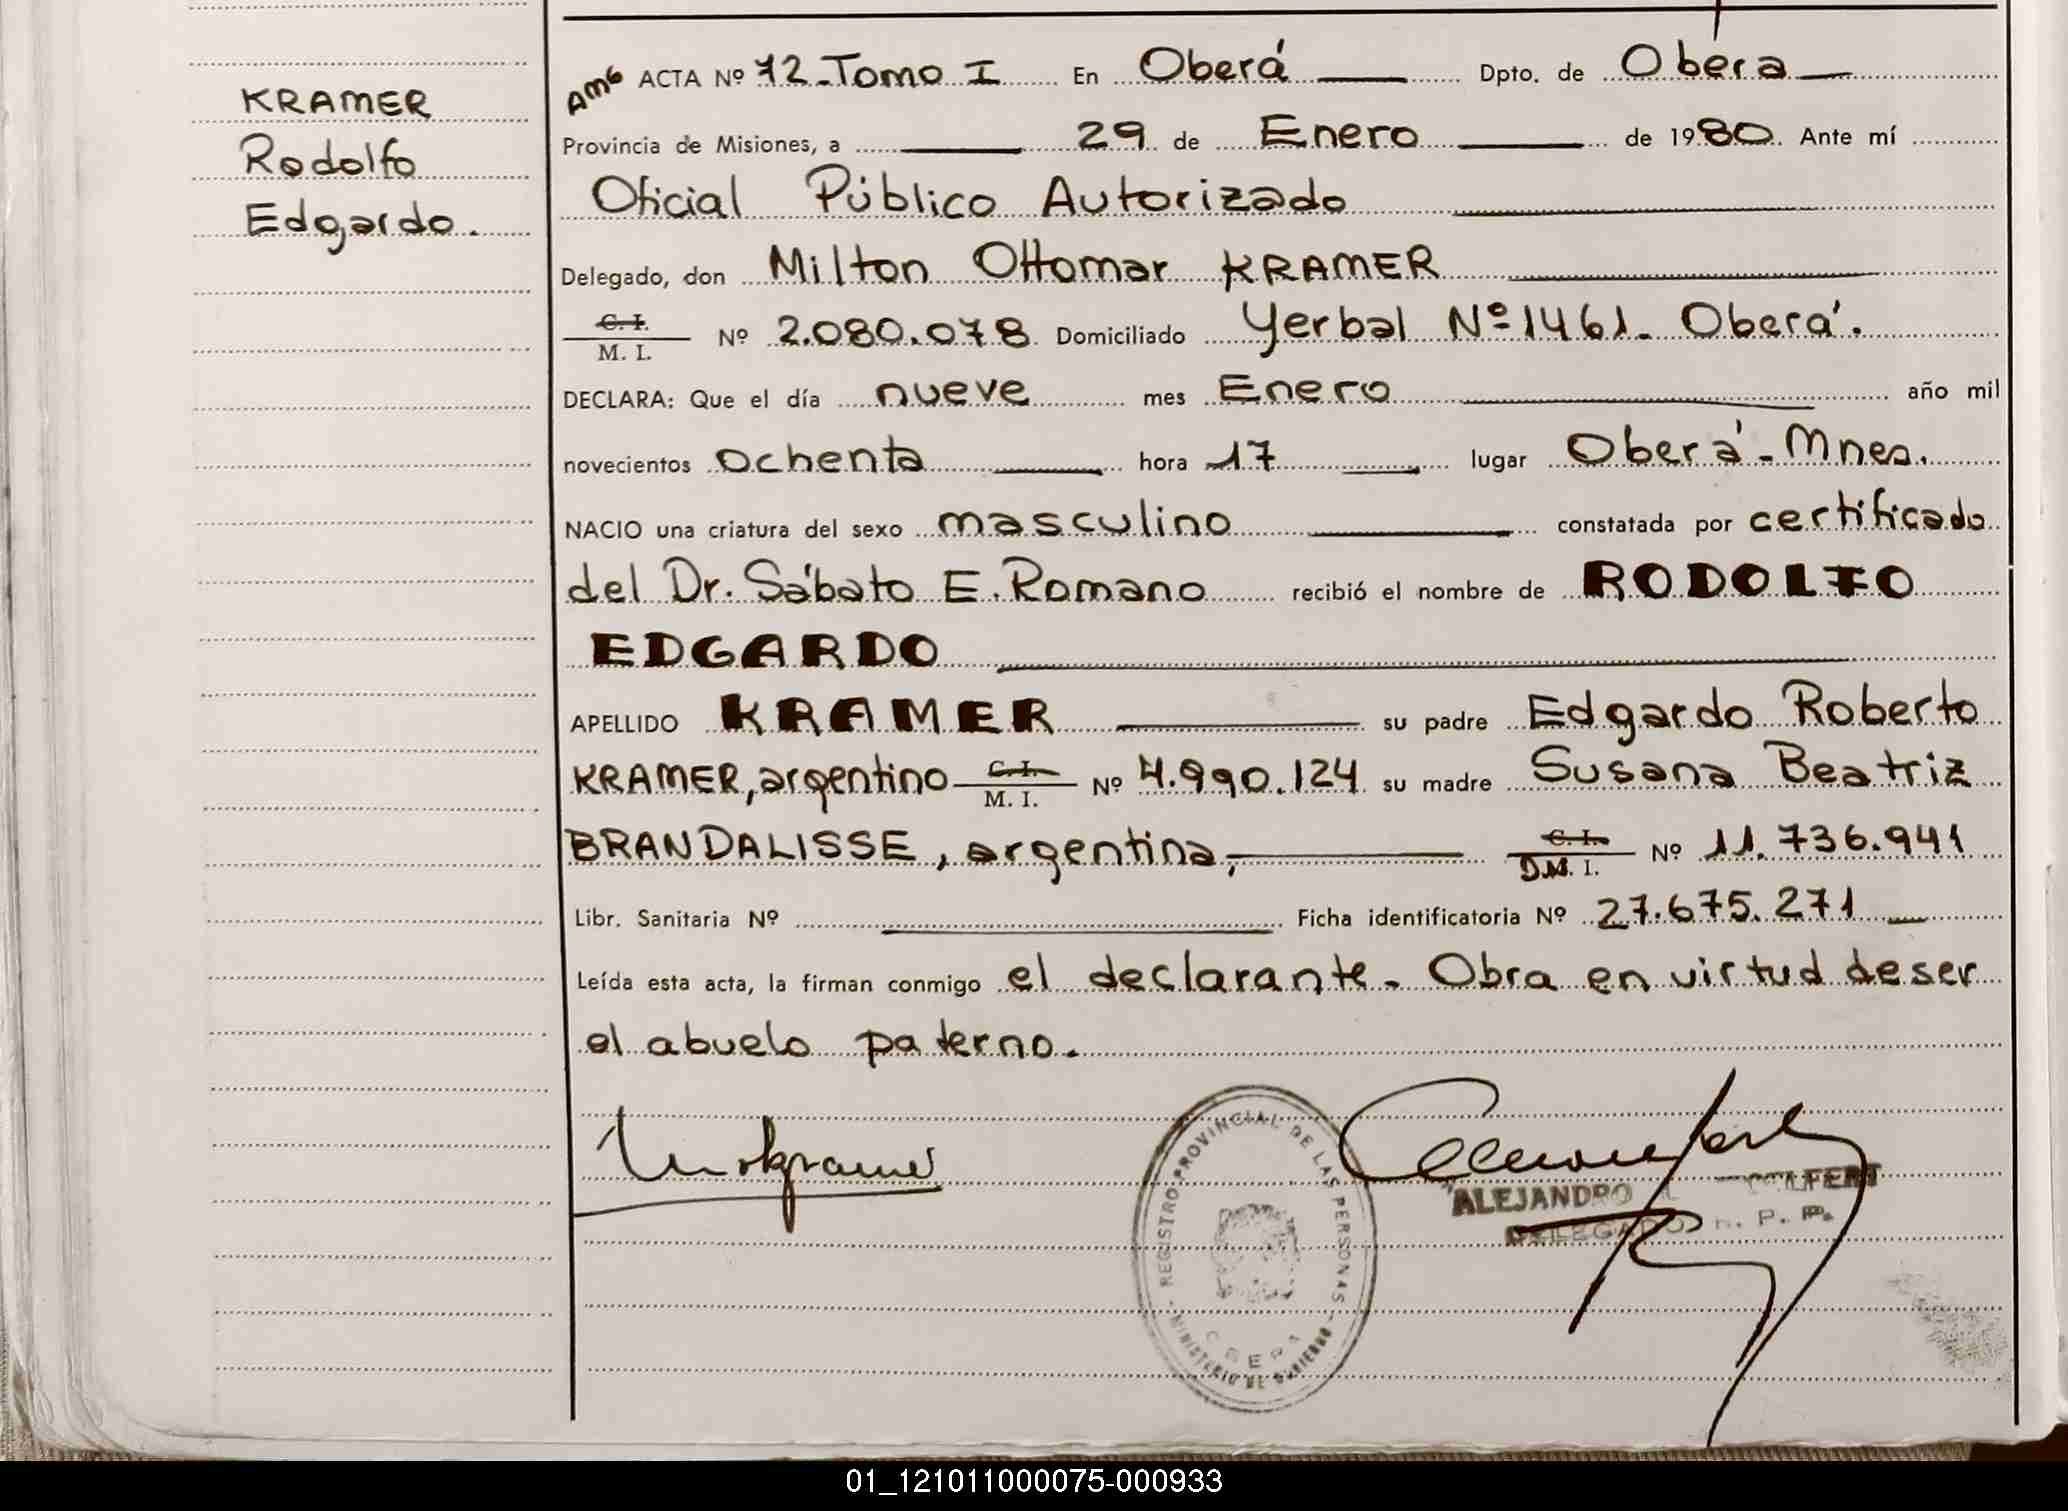 KRAMER
Rodolfo
Edgardo.
AMG ACTA Nº 72_Tomo I En Oberá Dpto. de Oberá
Provincia de Misiones, a 29 de Enero de 1980. Ante mí
Oficial Público Autorizado
Delegado, don Milton Ottomar KRAMER
C. I.
M. I. Nº 2.080.078 Domiciliado Yerbal Nº 1461_ Oberá.
DECLARA: Que el día nueve mes Enero año mil
novecientos ochenta hora 17 lugar Oberá - Mnes.
NACIO una criatura del sexo masculino constatada por certificado
del Dr. Sábato E. Romano recibió el nombre de RODOLFO
EDGARDO
APELLIDO KRAMER su padre Edgardo Roberto
KRAMER, argentino C. I. M. I. Nº 4.990.124 su madre Susana Beatriz
BRANDALISSE, argentina, C. I. D.M. I. Nº 11.736.941
Libr. Sanitaria Nº Ficha identificatoria Nº 27.675.271
Leída esta acta, la firman conmigo el declarante. Obra en virtud de ser
el abuelo paterno.
REGISTRO PROVINCIAL DE LAS PERSONAS
MINISTERIO DE GOBIERNO
OBERA
ALEJANDRO
DELEGADO R. P. P.
01_121011000075-000933